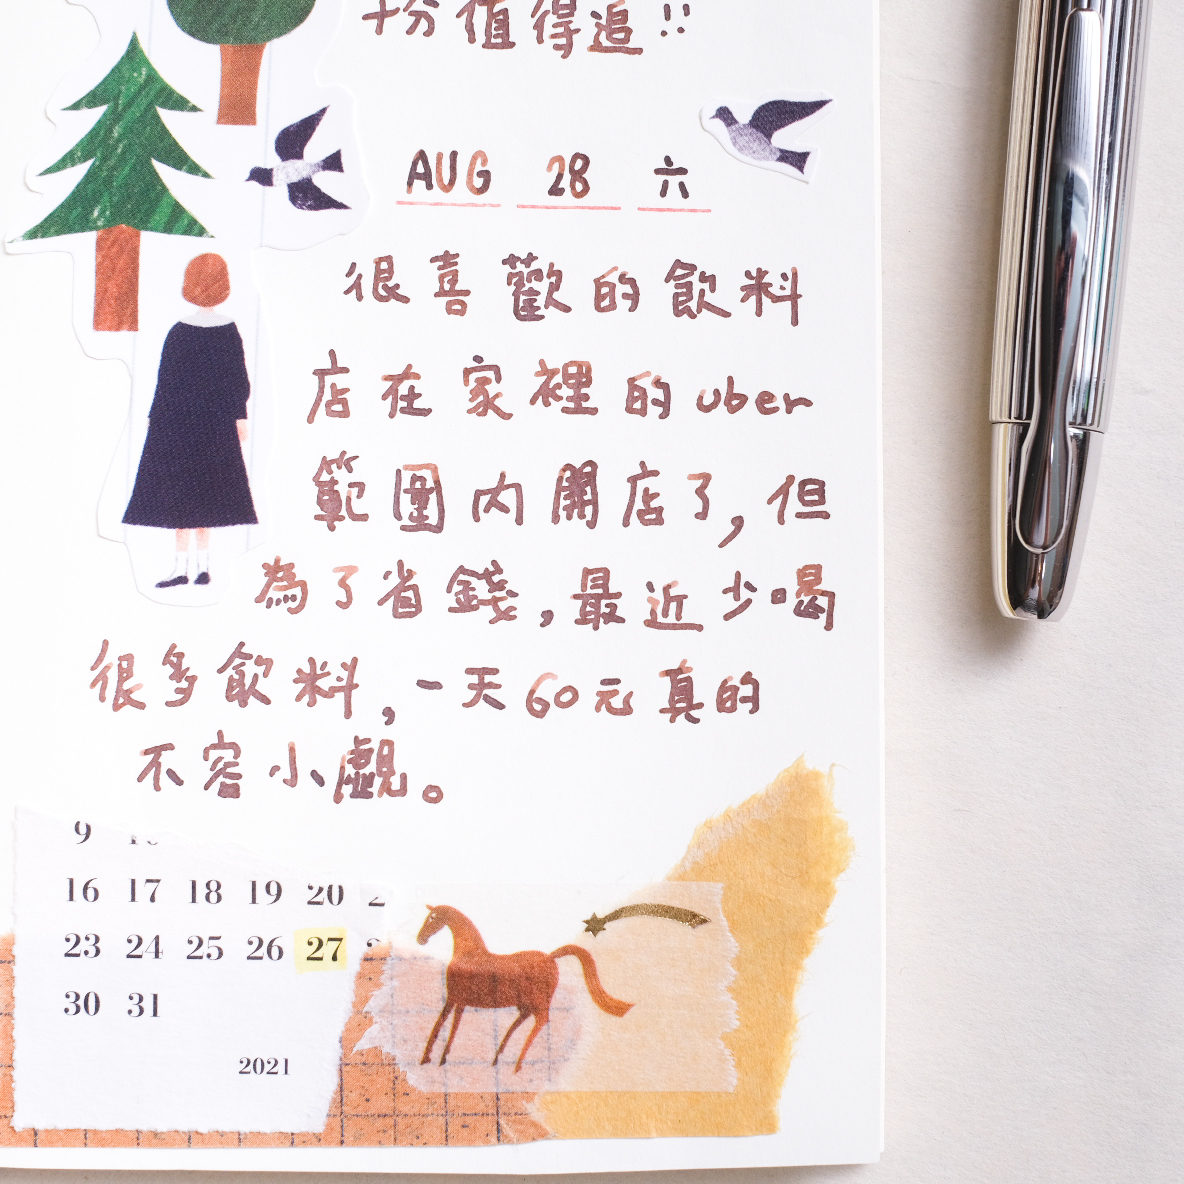 十分值得追!!
AUG 28 六
很喜歡的飲料
店在家裡的uber
範圍內開店了,但
為了省錢,最近少喝
很多飲料,一天60元真的
不容小覷。
9 10
16 17 18 19 20 2
23 24 25 26 27
30 31
2021